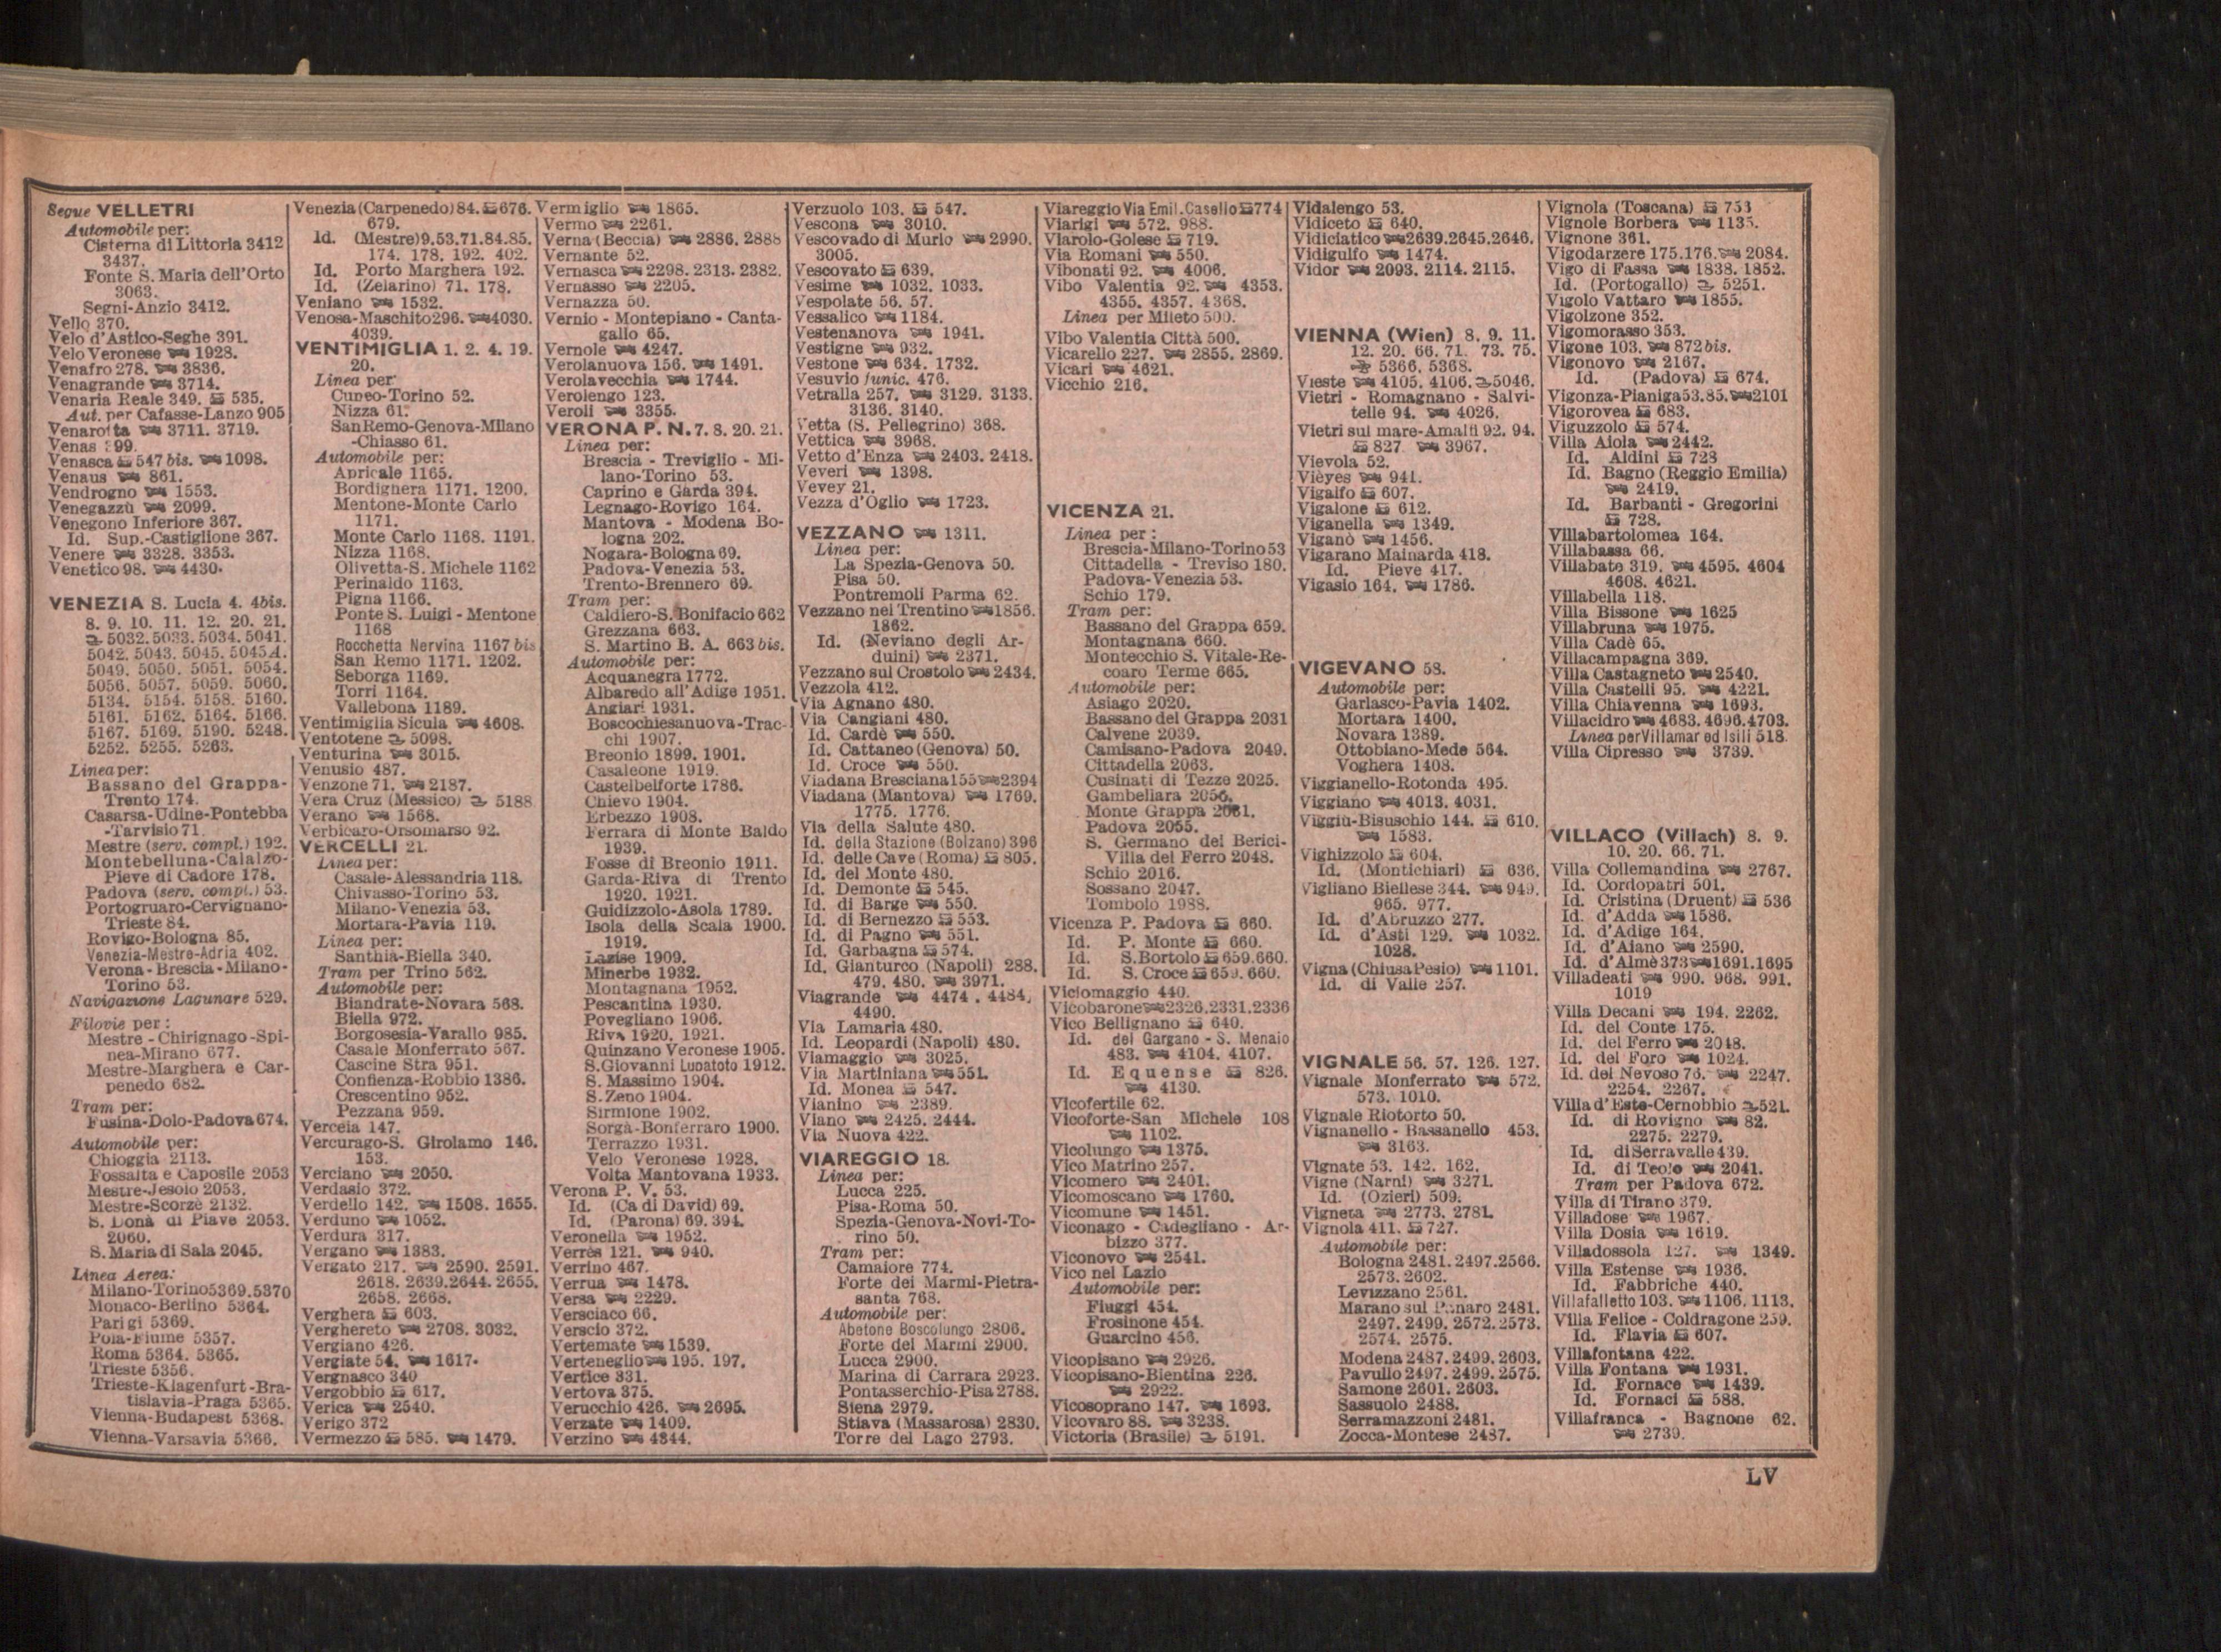 Segue VELLETRI
Automobile per:
Cisterna di Littoria 3412
3437.
Fonte S. Maria dell'Orto
3063.
Segni-Anzio 3412.
Vello 370.
Velo d'Astico-Seghe 391.
Velo Veronese 1928.
Venafro 278. 3836.
Venagrande 3714.
Venaria Reale 349. 535.
Aut. per Cafasse-Lanzo 905
Venarotta 3711. 3719.
Venas 399.
Venasca 547 bis. 1098.
Venaus 861.
Vendrogno 1553.
Venegazzù 2099.
Venegono Inferiore 367.
Id. Sup.-Castiglione 367.
Venere 3328. 3353.
Venetico 98. 4430.
VENEZIA S. Lucia 4. 4bis.
8. 9. 10. 11. 12. 20. 21.
5032. 5033. 5034. 5041.
5042. 5043. 5045. 5045A.
5049. 5050. 5051. 5054.
5056. 5057. 5059. 5060.
5134. 5154. 5158. 5160.
5161. 5162. 5164. 5166.
5167. 5169. 5190. 5248.
5252. 5255. 5263.
Linea per:
Bassano del Grappa-
Trento 174.
Casarsa-Udine-Pontebba
-Tarvisio 71.
Mestre (serv. compl.) 192.
Montebelluna-Calalzo-
Pieve di Cadore 178.
Padova (serv. compl.) 53.
Portogruaro-Cervignano-
Trieste 84.
Rovigo-Bologna 85.
Venezia-Mestre-Adria 402.
Verona-Brescia-Milano-
Torino 53.
Navigazione Lagunare 529.
Filovie per:
Mestre-Chirignago-Spi-
nea-Mirano 677.
Mestre-Marghera e Car-
penedo 682.
Tram per:
Fusina-Dolo-Padova 674.
Automobile per:
Chioggia 2113.
Fossalta e Caposile 2053
Mestre-Jesolo 2053.
Mestre-Scorzè 2132.
S. Donà di Piave 2053.
2060.
S. Maria di Sala 2045.
Linea Aerea:
Milano-Torino 5369. 5370
Monaco-Berlino 5364.
Parigi 5369.
Pola-Fiume 5357.
Roma 5364. 5365.
Trieste 5356.
Trieste-Klagenfurt-Bra-
tislavia-Praga 5365.
Vienna-Budapest 5368.
Vienna-Varsavia 5366.
Venezia (Carpenedo) 84. 676.
679.
Id. (Mestre) 9. 53. 71. 84. 85.
174. 178. 192. 402.
Id. Porto Marghera 192.
Id. (Zelarino) 71. 178.
Veniano 1532.
Venosa-Maschito 296. 4030.
4039.
VENTIMIGLIA 1. 2. 4. 19.
20.
Linea per:
Cuneo-Torino 52.
Nizza 61.
San Remo-Genova-Milano
-Chiasso 61.
Automobile per:
Apricale 1165.
Bordighera 1171. 1200.
Mentone-Monte Carlo
1171.
Monte Carlo 1168. 1191.
Nizza 1168.
Olivetta-S. Michele 1162
Perinaldo 1163.
Pigna 1166.
Ponte S. Luigi - Mentone
1168
Rocchetta Nervina 1167 bis
San Remo 1171. 1202.
Seborga 1169.
Torri 1164.
Vallebona 1189.
Ventimiglia Sicula 4608.
Ventotene 5098.
Venturina 3015.
Venusio 487.
Venzone 71. 2187.
Vera Cruz (Messico) 5188
Verano 1568.
Verbicaro-Orsomarso 92.
VERCELLI 21.
Linea per:
Casale-Alessandria 118.
Chivasso-Torino 53.
Milano-Venezia 53.
Mortara-Pavia 119.
Linea per:
Santhià-Biella 340.
Tram per Trino 562.
Automobile per:
Biandrate-Novara 568.
Biella 972.
Borgosesia-Varallo 985.
Casale Monferrato 567.
Cascine Stra 951.
Confienza-Robbio 1386.
Crescentino 952.
Pezzana 959.
Verceia 147.
Vercurago-S. Girolamo 146.
153.
Verciano 2050.
Verdasio 372.
Verdello 142. 1508. 1655.
Verduno 1052.
Verdura 317.
Vergano 1383.
Vergato 217. 2590. 2591.
2618. 2639. 2644. 2655.
2658. 2668.
Verghera 603.
Verghereto 2708. 3032.
Vergiano 426.
Vergiate 54. 1617.
Vergnasco 340
Vergobbio 617.
Verica 2540.
Verigo 372
Vermezzo 585. 1479.
Vermiglio 1865.
Vermo 2261.
Verna (Beccia) 2886. 2888
Vernante 52.
Vernasca 2298. 2313. 2382.
Vernasso 2205.
Vernazza 50.
Vernio - Montepiano - Canta-
gallo 65.
Vernole 4247.
Verolanuova 156. 1491.
Verolavecchia 1744.
Verolengo 123.
Veroli 3355.
VERONA P. N. 7. 8. 20. 21.
Linea per:
Brescia - Treviglio - Mi-
lano-Torino 53.
Caprino e Garda 394.
Legnago-Rovigo 164.
Mantova - Modena Bo-
logna 202.
Nogara-Bologna 69.
Padova-Venezia 53.
Trento-Brennero 69.
Tram per:
Caldiero-S. Bonifacio 662
Grezzana 663.
S. Martino B. A. 663 bis.
Automobile per:
Acquanegra 1772.
Albaredo all'Adige 1951.
Angiari 1931.
Boscochiesanuova-Trac-
chi 1907.
Breonio 1899. 1901.
Casaleone 1919.
Castelbelforte 1786.
Chievo 1904.
Erbezzo 1908.
Ferrara di Monte Baldo
1939.
Fosse di Breonio 1911.
Garda-Riva di Trento
1920. 1921.
Guidizzolo-Asola 1789.
Isola della Scala 1900.
1919.
Lazise 1909.
Minerbe 1932.
Montagnana 1952.
Pescantina 1930.
Povegliano 1906.
Riva 1920. 1921.
Quinzano Veronese 1905.
S. Giovanni Lupatoto 1912.
S. Massimo 1904.
S. Zeno 1904.
Sirmione 1902.
Sorgà-Bonferraro 1900.
Terrazzo 1931.
Velo Veronese 1928.
Volta Mantovana 1933.
Verona P. V. 53.
Id. (Ca di David) 69.
Id. (Parona) 69. 394.
Veronella 1952.
Verrès 121. 940.
Verrino 467.
Verrua 1478.
Versa 2229.
Versciaco 66.
Verscio 372.
Vertemate 1539.
Verteneglio 195. 197.
Vertice 331.
Vertova 375.
Verucchio 426. 2695.
Verzate 1409.
Verzino 4344.
Verzuolo 103. 547.
Vescona 3010.
Vescovado di Murlo 2990.
3005.
Vescovato 639.
Vesime 1032. 1033.
Vespolate 56. 57.
Vessalico 1184.
Vestenanova 1941.
Vestigne 932.
Vestone 634. 1732.
Vesuvio funic. 476.
Vetralla 257. 3129. 3133.
3136. 3140.
Vetta (S. Pellegrino) 368.
Vettica 3968.
Vetto d'Enza 2403. 2418.
Veveri 1398.
Vevey 21.
Vezza d'Oglio 1723.
VEZZANO 1311.
Linea per:
La Spezia-Genova 50.
Pisa 50.
Pontremoli Parma 62.
Vezzano nel Trentino 1856.
1862.
Id. (Neviano degli Ar-
duini) 2371.
Vezzano sul Crostolo 2434.
Vezzola 412.
Via Agnano 480.
Via Cangiani 480.
Id. Cardè 550.
Id. Cattaneo (Genova) 50.
Id. Croce 550.
Viadana Bresciana 155 2394
Viadana (Mantova) 1769.
1775. 1776.
Via della Salute 480.
Id. della Stazione (Bolzano) 396
Id. delle Cave (Roma) 805.
Id. del Monte 480.
Id. Demonte 545.
Id. di Barge 550.
Id. di Bernezzo 553.
Id. di Pagno 551.
Id. Garbagna 574.
Id. Gianturco (Napoli) 288.
479. 480. 3971.
Viagrande 4474. 4484,
4490.
Via Lamaria 480.
Id. Leopardi (Napoli) 480.
Viamaggio 3025.
Via Martiniana 551.
Id. Monea 547.
Vianino 2389.
Viano 2425. 2444.
Via Nuova 422.
VIAREGGIO 18.
Linea per:
Lucca 225.
Pisa-Roma 50.
Spezia-Genova-Novi-To-
rino 50.
Tram per:
Camaiore 774.
Forte dei Marmi-Pietra-
santa 768.
Automobile per:
Abetone Boscolungo 2806.
Forte dei Marmi 2900.
Lucca 2900.
Marina di Carrara 2923.
Pontasserchio-Pisa 2788.
Siena 2979.
Stiava (Massarosa) 2830.
Torre del Lago 2793.
Viareggio Via Emil. Casello 774
Viarigi 572. 988.
Viarolo-Golese 719.
Via Romani 550.
Vibonati 92. 4006.
Vibo Valentia 92. 4353.
4355. 4357. 4368.
Linea per Mileto 500.
Vibo Valentia Città 500.
Vicarello 227. 2855. 2869.
Vicari 4621.
Vicchio 216.
VICENZA 21.
Linea per:
Brescia-Milano-Torino 53
Cittadella - Treviso 180.
Padova-Venezia 53.
Schio 179.
Tram per:
Bassano del Grappa 659.
Montagnana 660.
Montecchio S. Vitale-Re-
coaro Terme 665.
Automobile per:
Asiago 2020.
Bassano del Grappa 2031
Calvene 2039.
Camisano-Padova 2049.
Cittadella 2063.
Cusinati di Tezze 2025.
Gambellara 2056.
Monte Grappa 2031.
Padova 2055.
S. Germano dei Berici-
Villa del Ferro 2048.
Schio 2016.
Sossano 2047.
Tombolo 1988.
Vicenza P. Padova 660.
Id. P. Monte 660.
Id. S. Bortolo 659. 660.
Id. S. Croce 659. 660.
Viciomaggio 440.
Vicobarone 2326. 2331. 2336
Vico Bellignano 640.
Id. del Gargano - S. Menaio
483. 4104. 4107.
Id. Equense 826.
4130.
Vicofertile 62.
Vicoforte-San Michele 108
1102.
Vicolungo 1375.
Vico Matrino 257.
Vicomero 2401.
Vicomoscano 1760.
Vicomune 1451.
Viconago - Cadegliano - Ar-
bizzo 377.
Viconovo 2541.
Vico nel Lazio
Automobile per:
Fiuggi 454.
Frosinone 454.
Guarcino 456.
Vicopisano 2926.
Vicopisano-Bientina 226.
2922.
Vicosoprano 147. 1693.
Vicovaro 88. 3238.
Victoria (Brasile) 5191.
Vidalengo 53.
Vidiceto 640.
Vidiciatico 2639. 2645. 2646.
Vidigulfo 1474.
Vidor 2093. 2114. 2115.
VIENNA (Wien) 8. 9. 11.
12. 20. 66. 71. 73. 75.
5366. 5368.
Vieste 4105. 4106. 5046.
Vietri - Romagnano - Salvi-
telle 94. 4026.
Vietri sul mare-Amalfi 92. 94.
827 3967.
Vievola 52.
Vièyes 941.
Vigalfo 607.
Vigalone 612.
Viganella 1349.
Viganò 1456.
Vigarano Mainarda 418.
Id. Pieve 417.
Vigasio 164. 1786.
VIGEVANO 58.
Automobile per:
Garlasco-Pavia 1402.
Mortara 1400.
Novara 1389.
Ottobiano-Mede 564.
Voghera 1408.
Viggianello-Rotonda 495.
Viggiano 4013. 4031.
Viggiù-Bisuschio 144. 610.
1583.
Vighizzolo 604.
Id. (Montichiari) 636.
Vigliano Biellese 344. 949.
965. 977.
Id. d'Abruzzo 277.
Id. d'Asti 129. 1032.
1028.
Vigna (Chiusa Pesio) 1101.
Id. di Valle 257.
VIGNALE 56. 57. 126. 127.
Vignale Monferrato 572.
573. 1010.
Vignale Riotorto 50.
Vignanello - Bassanello 453.
3163.
Vignate 53. 142. 162.
Vigne (Narni) 3271.
Id. (Ozieri) 509.
Vigneta 2773. 2781.
Vignola 411. 727.
Automobile per:
Bologna 2481. 2497. 2566.
2573. 2602.
Levizzano 2561.
Marano sul Panaro 2481.
2497. 2499. 2572. 2573.
2574. 2575.
Modena 2487. 2499. 2603.
Pavullo 2497. 2499. 2575.
Samone 2601. 2603.
Sassuolo 2488.
Serramazzoni 2481.
Zocca-Montese 2487.
Vignola (Toscana) 753
Vignole Borbera 1135.
Vignone 361.
Vigodarzere 175. 176. 2084.
Vigo di Fassa 1838. 1852.
Id. (Portogallo) 5251.
Vigolo Vattaro 1855.
Vigolzone 352.
Vigomorasso 353.
Vigone 103. 872 bis.
Vigonovo 2167.
Id. (Padova) 674.
Vigonza-Pianiga 53. 85. 2101
Vigorovea 683.
Viguzzolo 574.
Villa Aiola 2442.
Id. Aldini 728
Id. Bagno (Reggio Emilia)
2419.
Id. Barbanti - Gregorini
728.
Villabartolomea 164.
Villabassa 66.
Villabate 319. 4595. 4604
4608. 4621.
Villabella 118.
Villa Bissone 1625
Villabruna 1975.
Villa Cadè 65.
Villacampagna 369.
Villa Castagneto 2540.
Villa Castelli 95. 4221.
Villa Chiavenna 1693.
Villacidro 4683. 4696. 4703.
Linea per Villamar ed Isili 518.
Villa Cipresso 3739.
VILLACO (Villach) 8. 9.
10. 20. 66. 71.
Villa Collemandina 2767.
Id. Cordopatri 501.
Id. Cristina (Druent) 536
Id. d'Adda 1586.
Id. d'Adige 164.
Id. d'Aiano 2590.
Id. d'Almè 373 1691. 1695
Villadeati 990. 968. 991.
1019
Villa Decani 194. 2262.
Id. del Conte 175.
Id. del Ferro 2048.
Id. del Foro 1024.
Id. del Nevoso 76. 2247.
2254. 2267.
Villa d'Este-Cernobbio 521.
Id. di Rovigno 82.
2275. 2279.
Id. di Serravalle 439.
Id. di Teolo 2041.
Tram per Padova 672.
Villa di Tirano 379.
Villadose 1967.
Villa Dosia 1619.
Villadossola 127. 1349.
Villa Estense 1936.
Id. Fabbriche 440.
Villafalletto 103. 1106. 1113.
Villa Felice - Coldragone 259.
Id. Flavia 607.
Villafontana 422.
Villa Fontana 1931.
Id. Fornace 1439.
Id. Fornaci 588.
Villafranca - Bagnone 62.
2739.
LV